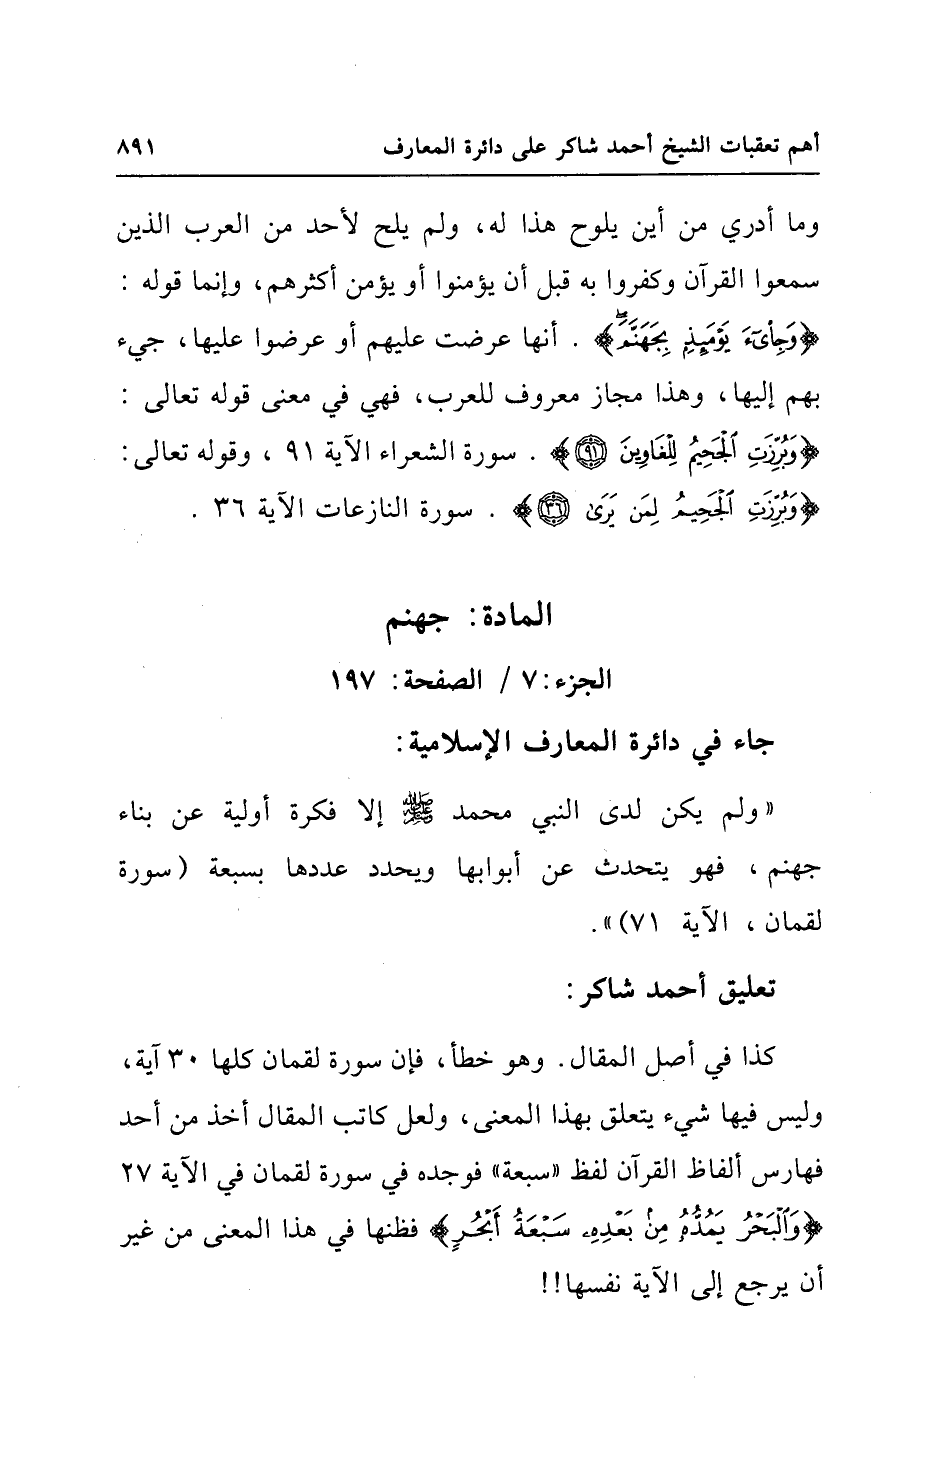 أهم تعقبات الشيخ أحمد شاكر على دائرة المعارف ٨٩١
وما أدري من أين يلوح هذا له، ولم يلح لأحد من العرب الذين
سمعوا القرآن وكفروا به قبل أن يؤمنوا أو يؤمن أكثرهم، وإنما قوله :
﴿وَجِاْىٓءَ يَوْمَئِذٍۭ بِجَهَنَّمَۚ﴾ . أنها عرضت عليهم أو عرضوا عليها، جيء
بهم إليها، وهذا مجاز معروف للعرب، فهي في معنى قوله تعالى :
﴿وَبُرِّزَتِ ٱلْجَحِيمُ لِلْغَاوِينَ ٩١﴾ . سورة الشعراء الآية ٩١ ، وقوله تعالى:
﴿وَبُرِّزَتِ ٱلْجَحِيمُ لِمَن يَرَىٰ ٣٦﴾ . سورة النازعات الآية ٣٦ .
المادة: جهنم
الجزء:٧ / الصفحة: ١٩٧
جاء في دائرة المعارف الإسلامية:
«ولم يكن لدى النبي محمد ﷺ إلا فكرة أولية عن بناء
جهنم، فهو يتحدث عن أبوابها ويحدد عددها بسبعة (سورة
لقمان، الآية ٧١)».
تعليق أحمد شاكر:
كذا في أصل المقال. وهو خطأ، فإن سورة لقمان كلها ٣٠ آية،
وليس فيها شيء يتعلق بهذا المعنى، ولعل كاتب المقال أخذ من أحد
فهارس ألفاظ القرآن لفظ «سبعة» فوجده في سورة لقمان في الآية ٢٧
﴿وَٱلْبَحْرُ يَمُدُّهُۥ مِنۢ بَعْدِهِۦ سَبْعَةُ أَبْحُرٍ﴾ فظنها في هذا المعنى من غير
أن يرجع إلى الآية نفسها!!